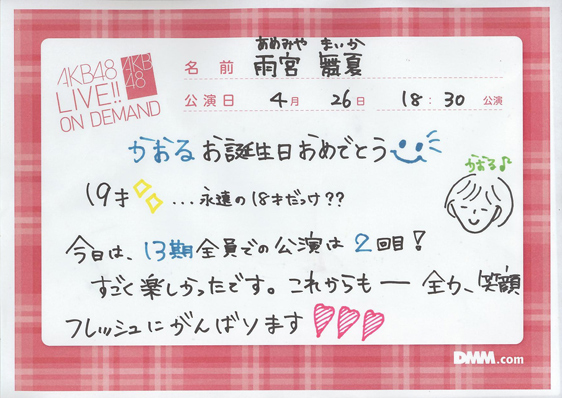 AKB48
LIVE!!
ON DEMAND
AKB
48
あめみや まいか
名前 雨宮 舞夏
公演日 4月 26日 18:30 公演
かおる お誕生日おめでとう
かおる♪
19才 ...永遠の18才だっけ??
今日は、13期全員での公演は2回目!
すごく楽しかったです。これからも ー 全力、笑顔
フレッシュにがんばります
DMM.com